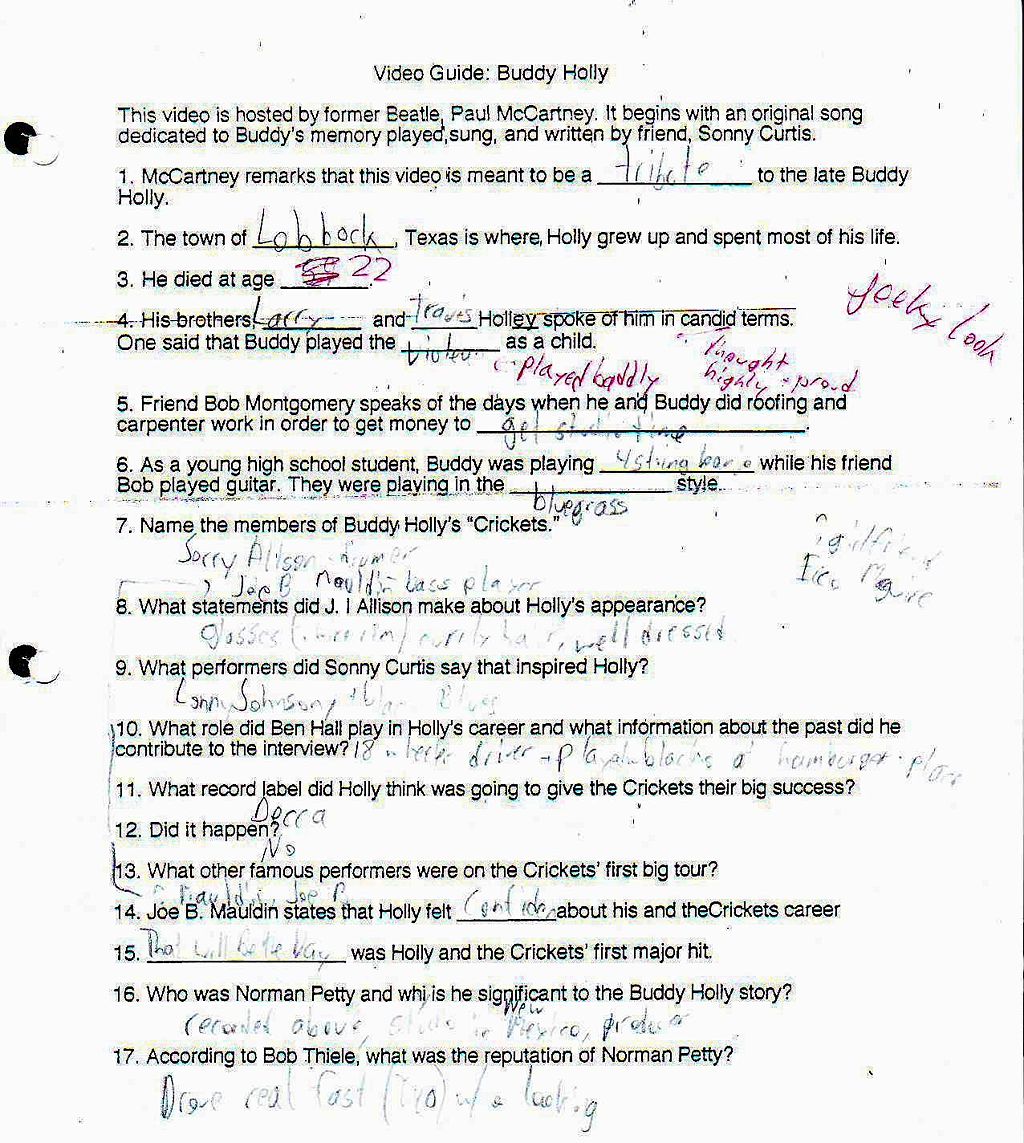 Video Guide: Buddy Holly
This video is hosted by former Beatle, Paul McCartney. It begins with an original song
dedicated to Buddy's memory played,sung, and written by friend, Sonny Curtis.
1. McCartney remarks that this video is meant to be a tribute to the late Buddy
Holly.
2. The town of Lobbock, Texas is where, Holly grew up and spent most of his life.
3. He died at age 22.
4. His brothers Larry and travis Holley spoke of him in candid terms.
Geeky look
One said that Buddy played the violen as a child.
thought
played baddly highly - proud
5. Friend Bob Montgomery speaks of the days when he and Buddy did roofing and
carpenter work in order to get money to get studio time.
6. As a young high school student, Buddy was playing 4 string while his friend
Bob played guitar. They were playing in the bluegrass style.
7. Name the members of Buddy Holly's "Crickets."
girlfriend
Joe B Mauldin bass player
8. What statements did J. I Allison make about Holly's appearance?
glasses curly hair, well dressed
9. What performers did Sonny Curtis say that inspired Holly?
Lonny Johnson Blues
10. What role did Ben Hall play in Holly's career and what information about the past did he
contribute to the interview? 18 driver hamburger place
11. What record label did Holly think was going to give the Crickets their big success?
Decca
12. Did it happen?
No
13. What other famous performers were on the Crickets' first big tour?
Mauldin, Joe B.
14. Joe B. Mauldin states that Holly felt about his and theCrickets career
15. That will be the Day was Holly and the Crickets' first major hit.
16. Who was Norman Petty and whi is he significant to the Buddy Holly story?
recorded above, studio in New Mexico, producer
17. According to Bob Thiele, what was the reputation of Norman Petty?
Drove real fast